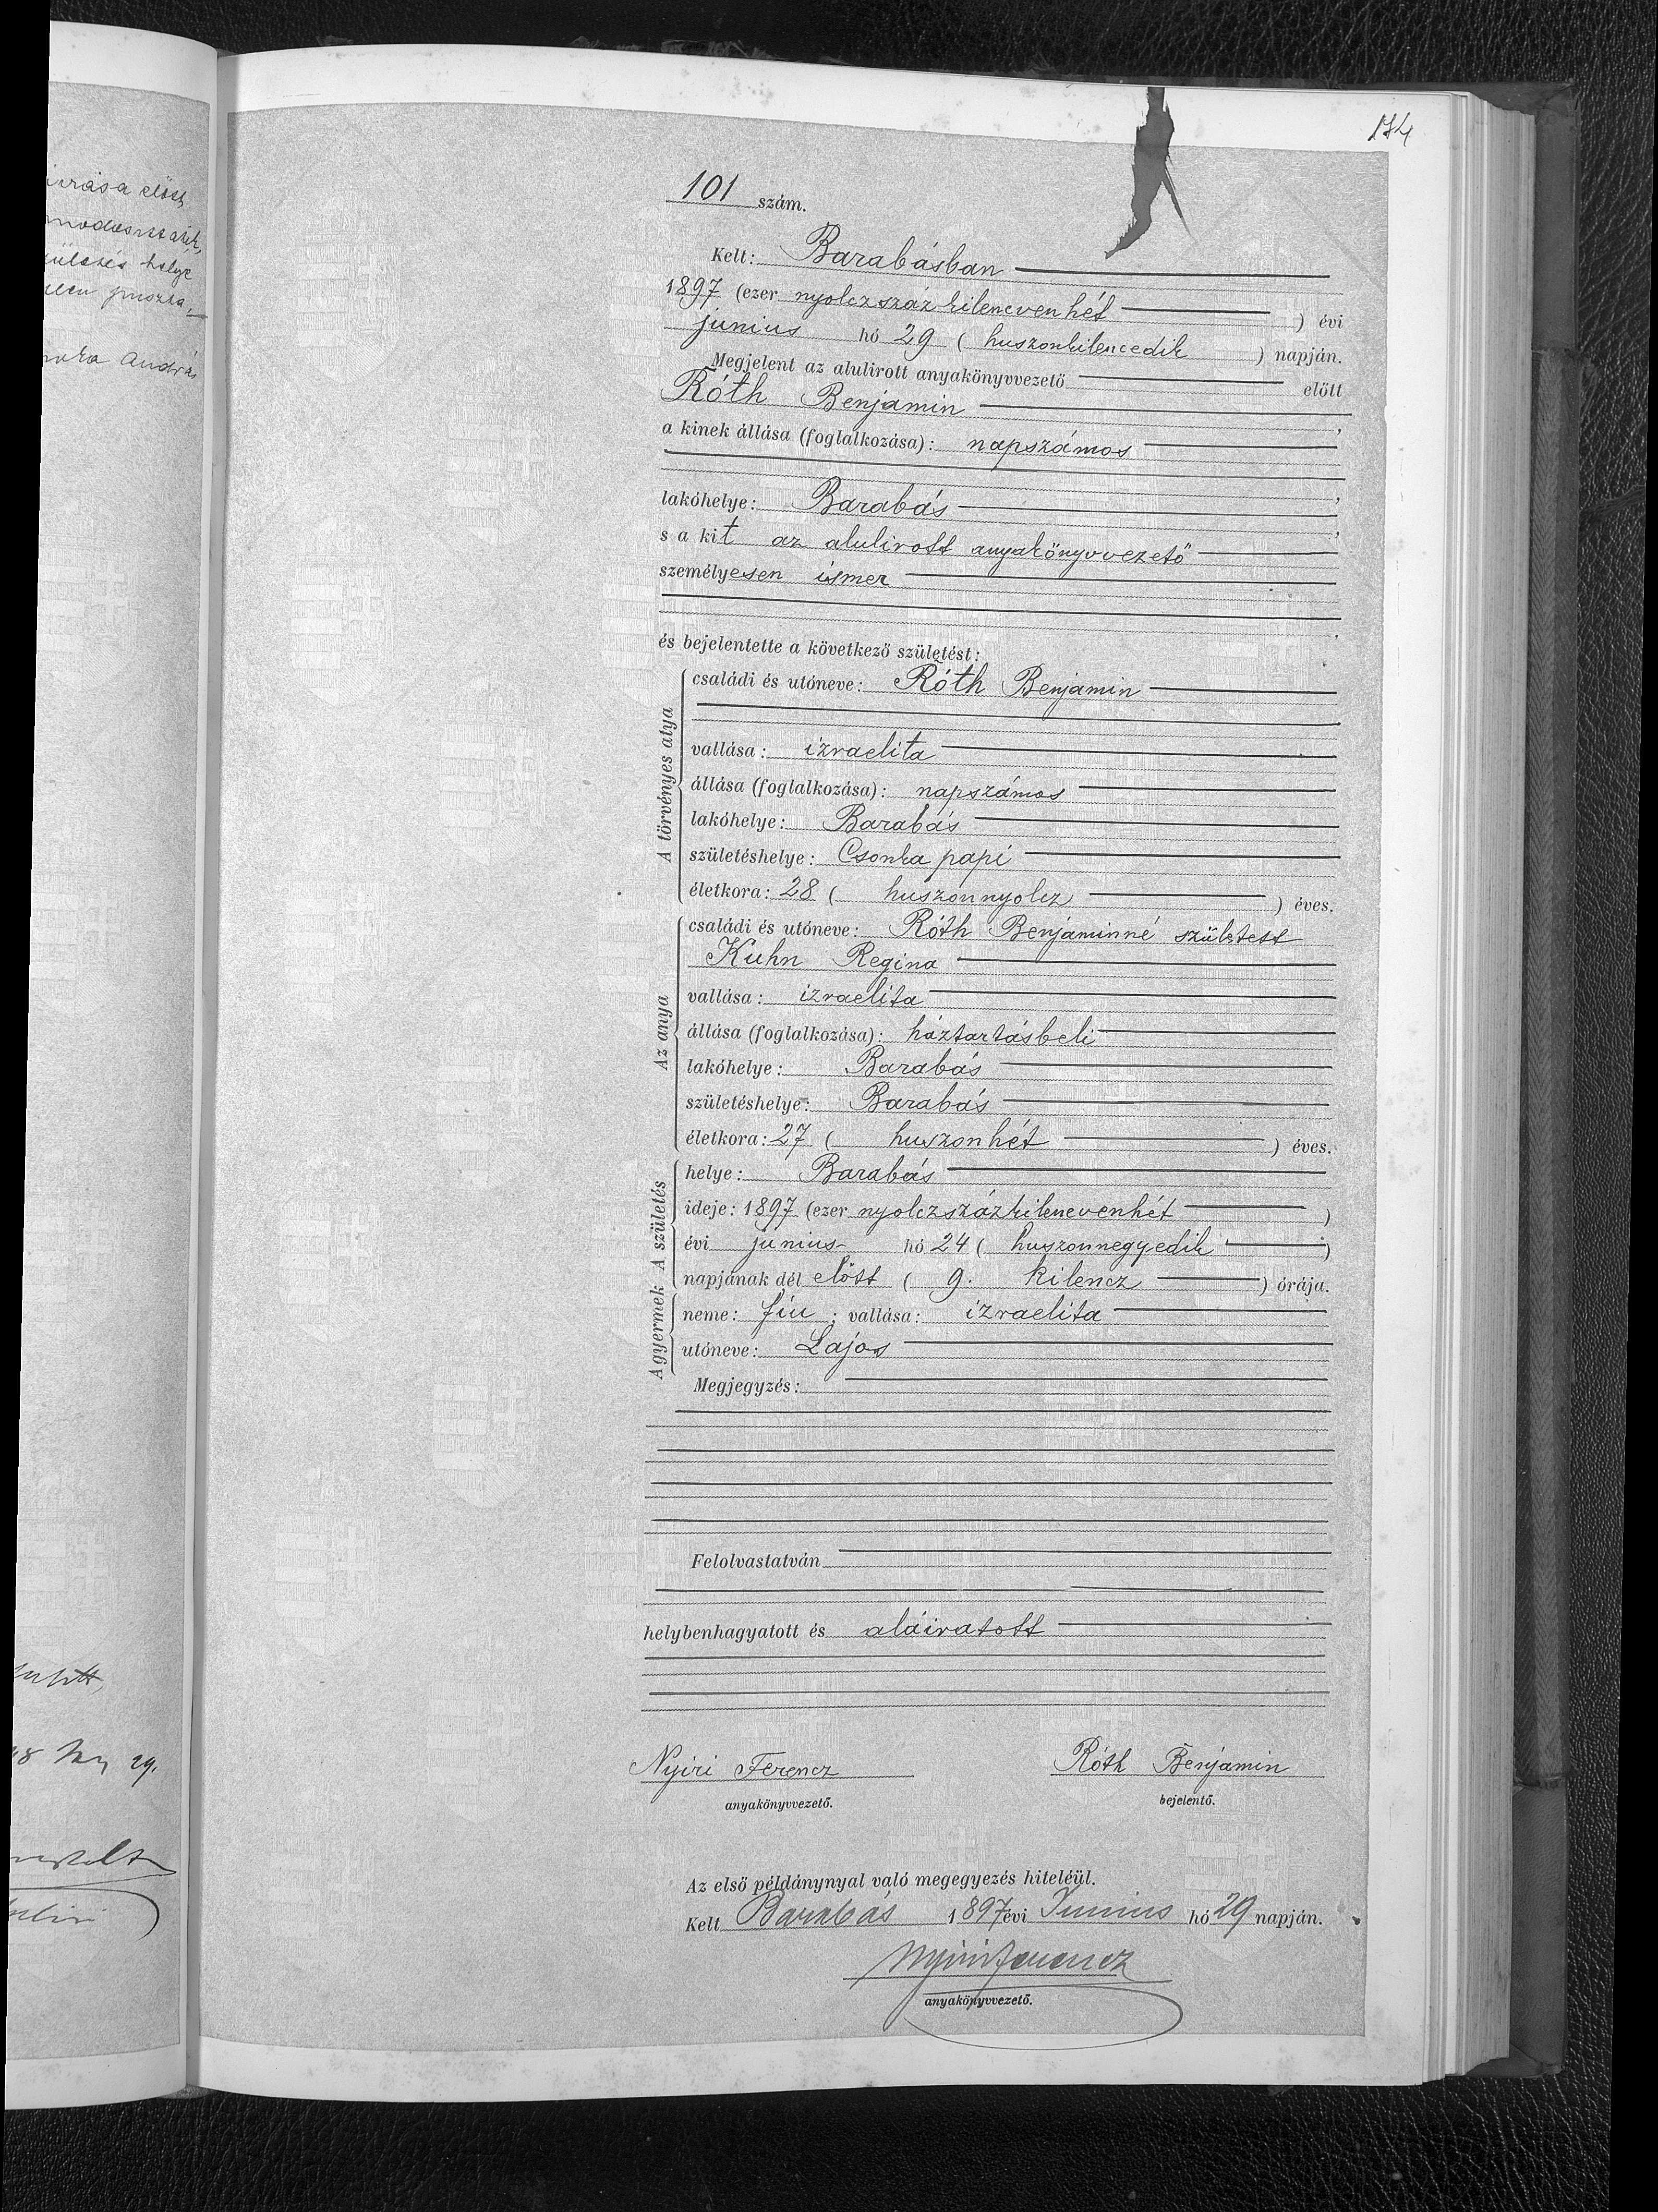 174
irása előtt
születés helye
puszta,
András
29.
101 szám.
Kelt: Barabásban
1897 (ezer nyolczszáz kilenczvenhét ) évi
junius hó 29 ( huszonkilenczedik ) napján.
Megjelent az alulirott anyakönyvvezető előtt
Róth Benjamin ,
a kinek állása (foglalkozása): napszámos
,
lakóhelye: Barabás ,
s a kit az alulirott anyakönyvvezető
személyesen ismer
.
és bejelentette a következő születést:
A törvényes atya
családi és utóneve: Róth Benjamin
vallása: izraelita
állása (foglalkozása): napszámos
lakóhelye: Barabás
születéshelye: Csonka papi
életkora: 28 ( huszonnyolcz ) éves.
Az anya
családi és utóneve: Róth Benjaminné született
Kuhn Regina
vallása: izraelita
állása (foglalkozása): háztartásbeli
lakóhelye: Barabás
születéshelye: Barabás
életkora: 27 ( huszonhét ) éves.
A születés
helye: Barabás
ideje: 1897 (ezer nyolczszázkilenczvenhét )
évi junius hó 24 ( huszonnegyedik )
napjának dél előtt ( 9. kilencz ) órája.
A gyermek
neme: fiu ; vallása: izraelita
utóneve: Lajos
Megjegyzés:
Felolvastatván
helybenhagyatott és aláiratott
Nyiri Ferencz Róth Benjamin
anyakönyvvezető. bejelentő.
Az első példánynyal való megegyezés hiteléül.
Kelt Barabás 1897 évi Junius hó 29 napján.
Nyiri Ferencz
anyakönyvvezető.